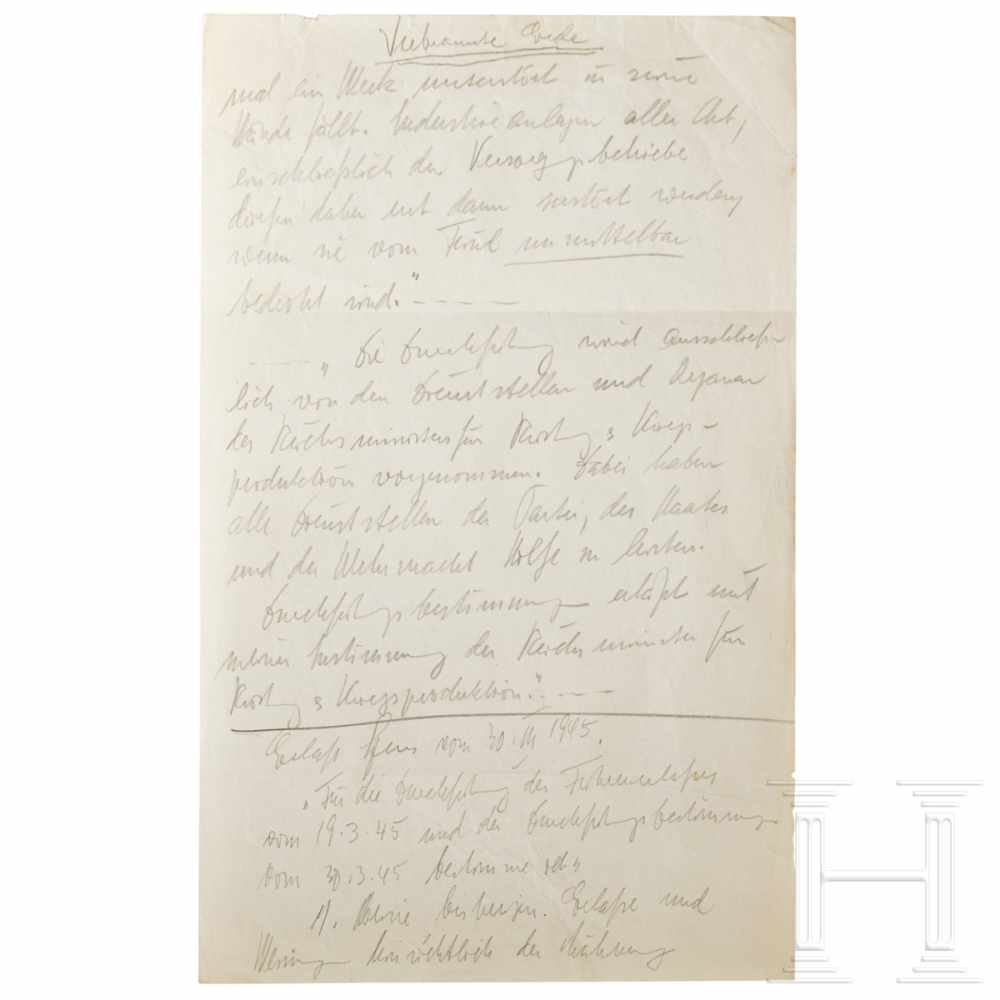 Verbrannte Erde
und ein Werk unzerstört in seine
Hände fällt. Industrieanlagen aller Art,
einschließlich der Versorggsbetriebe
dürfen daher erst dann zerstört werden,
wenn sie vom Feind unmittelbar
bedroht sind." —
— „Die Durchführung wird ausschließ
lich von den Dienststellen und Organen
des Reichsministers für Rüstg u. Kriegs-
produktion vorgenommen. Dabei haben
alle Dienststellen der Partei, des Staates
und der Wehrmacht Hilfe zu leisten.
Durchführungsbestimmung erläßt mit
meiner Zustimmung der Reichsminister für
Rüstg u. Kriegsproduktion." —
Erlaß vom 30. III 1945.
„Für die Durchführung des Führererlaßes
vom 19.3.45 und der Durchführungsbestimmung
vom 30.3.45 bestimme ich:
1). Meine bisherigen Erlaße und
Weisung hinsichtlich der Lähmung
H